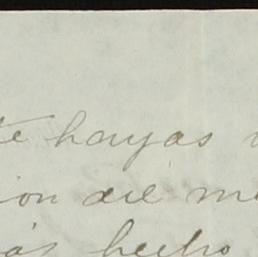 te hayas
ion del me
ás hecho